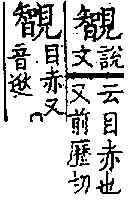 說文
云目赤也
又前歷切
目赤又
音逖